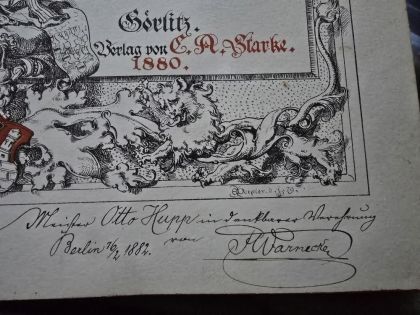 Görlitz.
Verlag von C. A. Starke.
1880.
Meister Otto Hupp in dankbarer Verehrung
Berlin 16/2 1882. von F Warnecke